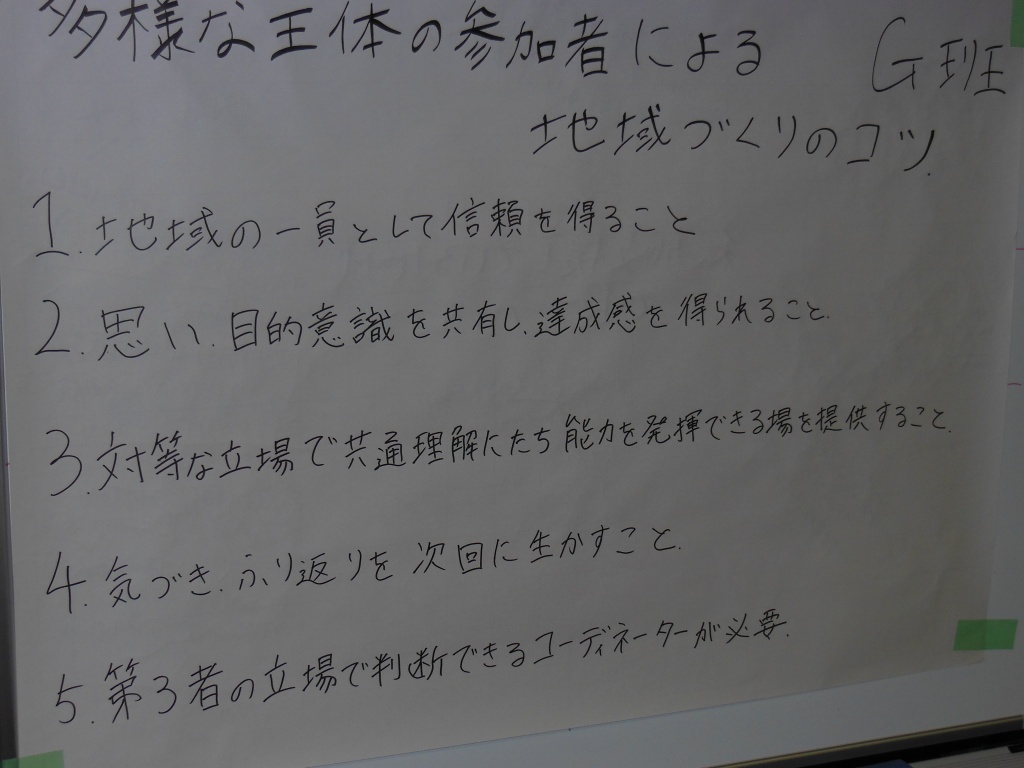 多様な主体の参加者による
G班
地域づくりのコツ
1. 地域の一員として信頼を得ること
2. 思い、目的意識を共有し、達成感を得られること。
3. 対等な立場で共通理解にたち能力を発揮できる場を提供すること。
4. 気づき、ふり返りを次回に生かすこと。
5. 第3者の立場で判断できるコーディネーターが必要。